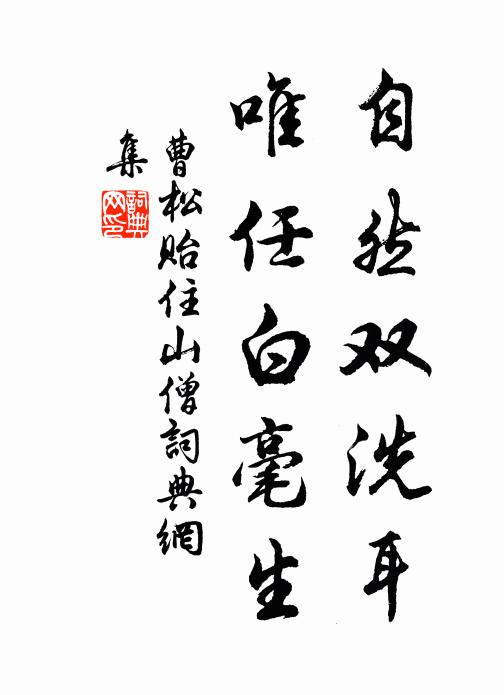 自然双洗耳
唯任白毫生
曹松贻住山僧詞典網
集
詞典
网印